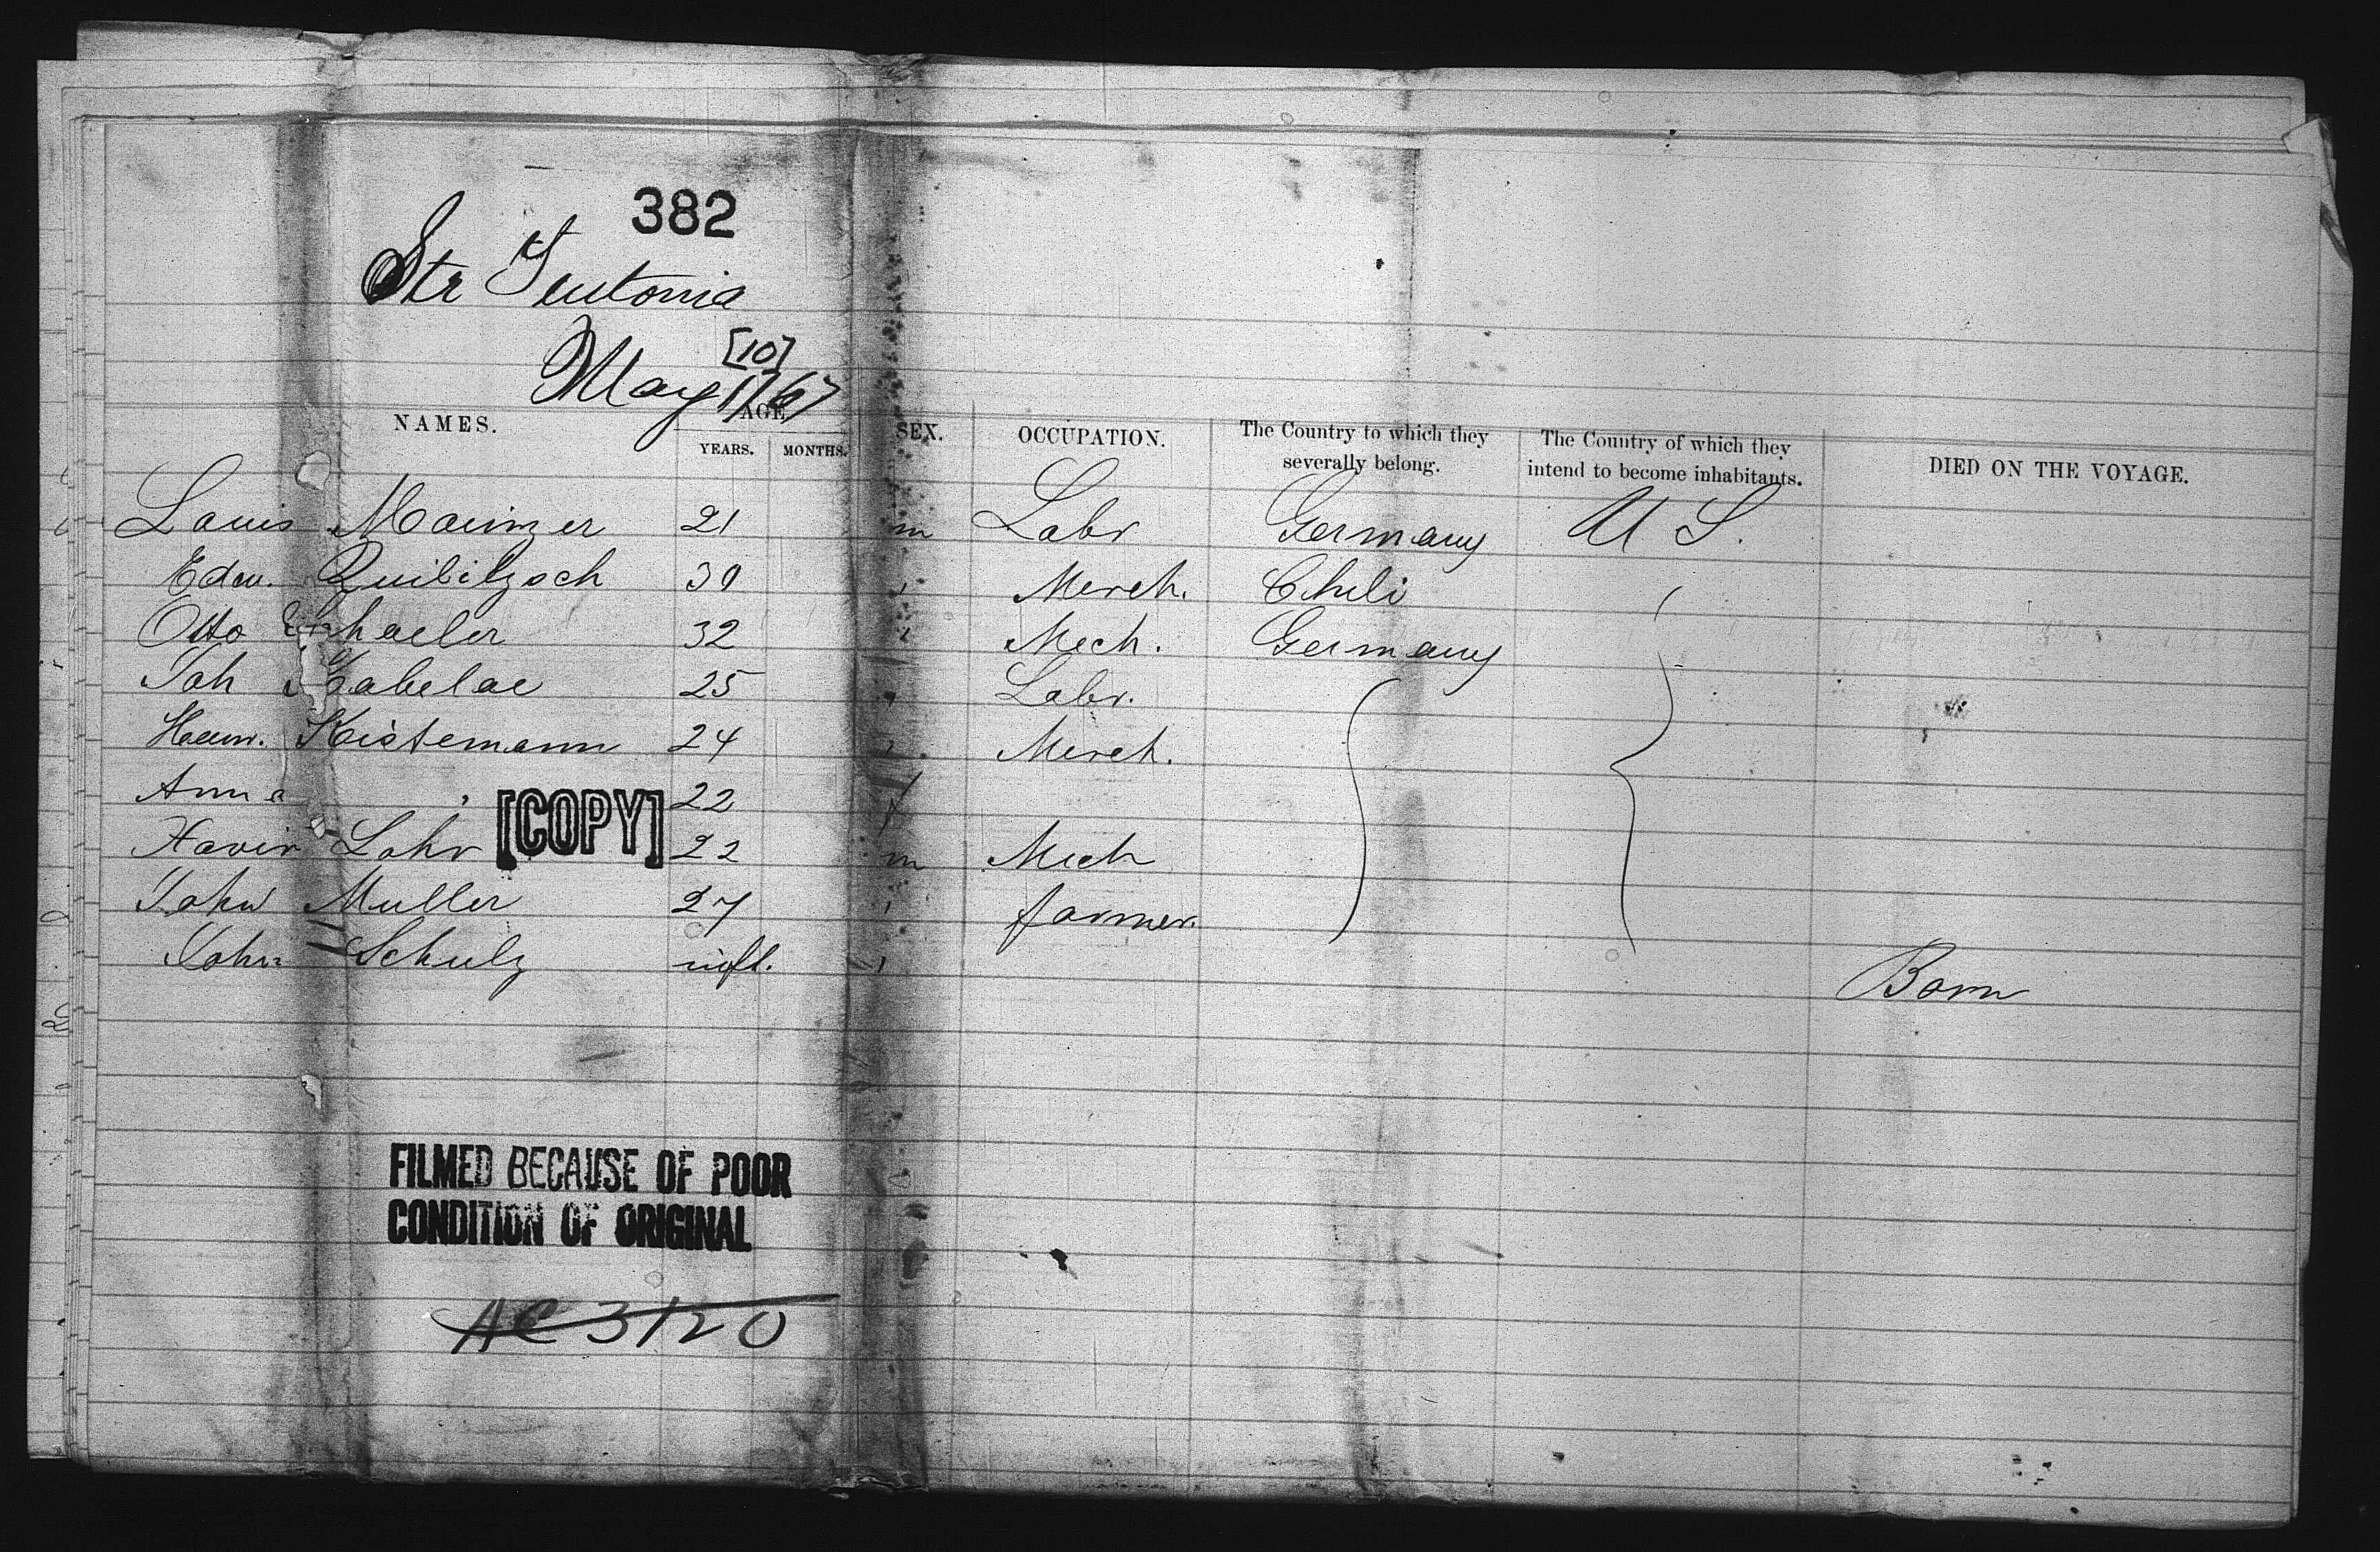 382
Str Teutonia
[10]
May 11/67
NAMES. AGE. YEARS. MONTHS. SEX. OCCUPATION. The Country to which they severally belong. The Country of which they intend to become inhabitants. DIED ON THE VOYAGE.
Louis 21 m Labr Germany U S.
Edw. Merch. Chili
Otto 32 " Mech. Germany
Joh 25 " Labr.
Heinr. Kistemann 24 " Merch.
Anna " 22 f
Xavir Lohr 22 m Mech
John Muller 27 " farmer.
John Schulz inft. " Born
[COPY]
FILMED BECAUSE OF POOR
CONDITION OF ORIGINAL
AC 3120